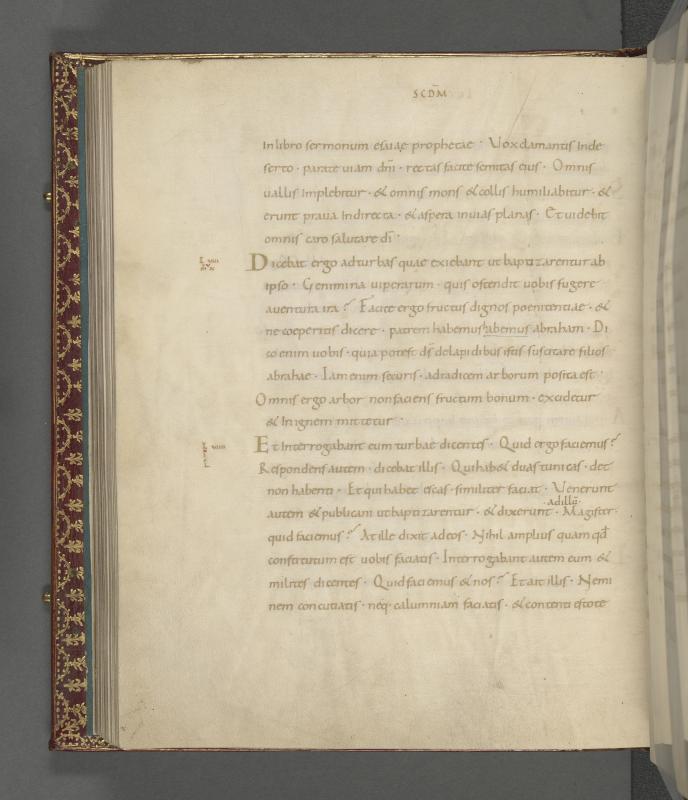 SCDM̄
In libro sermonum esaiae prophetae · Vox clamantis In de
serto · parate uiam dn̄i · rectas facite semitas eius · Omnis
uallis Implebitur · & omnis mons & collis humiliabitur · &
erunt praua In directa · & aspera in uias planas · Et uidebit
omnis caro salutare dī ·
Dicebat ergo ad turbas quae exiebant ut baptizarentur ab
ipso · Genimina uiperarum · quis ostendit uobis fugere
a uentura ira? Facite ergo fructus dignos poenitentiae · &
ne coeperitis dicere · patrem habemus habemus abraham · Di
co enim uobis · quia potest dš de lapidibus istis suscitare filios
abrahae · Iam enim securis · ad radicem arborum posita est ·
Omnis ergo arbor non faciens fructum bonum · excidetur
& In ignem mittetur ·
Et Interrogabant eum turbae dicentes · Quid ergo faciemus?
Respondens autem · dicebat illis · Qui hab& duas tunicas · det
non habenti · Et qui habet escas · similiter faciat · Venerunt
· ad illū ·
autem & publicani ut baptizarentur · & dixerunt · Magister ·
quid faciemus? At ille dixit ad eos · Nihil amplius quam qđ
constitutum est uobis faciatis · Interrogabant autem eum &
milites dicentes · Quid faciemus & nos? Et ait illis · Nemi
nem concutiatis · neq· calumniam faciatis · & contenti estote